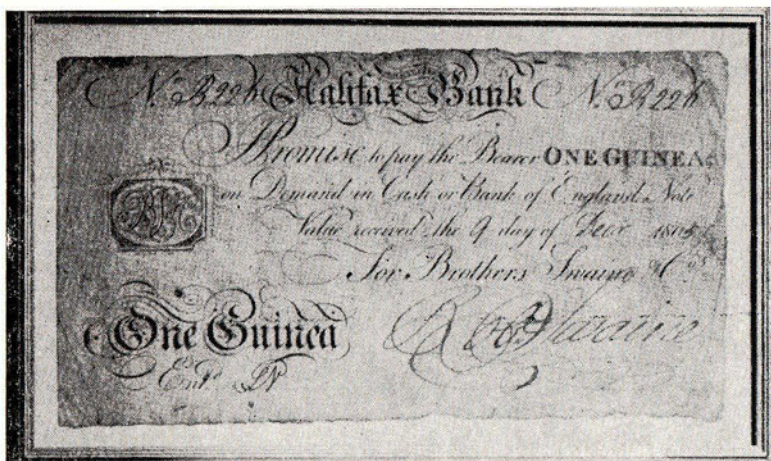 No. B226 Halifax Bank No. B226
Promise to pay the Bearer ONE GUINEA
on Demand in Cash or Bank of England Note
Value received the 9 day of Decr 1805
For Brothers Swaine & Co.
One Guinea
Entd.